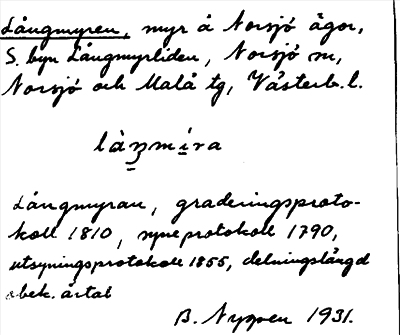 Långmyren, myr å Norsjö ägor,
S. byn Långmyrliden, Norsjö sn,
Norsjö och Malå tg, Västerb. l.
làŋmíra
Långmyran, graderingsproto-
koll 1810, syneprotokoll 1790,
utsyningsprotokoll 1855, delningslängd
obek. årtal
B. Nyman 1931.